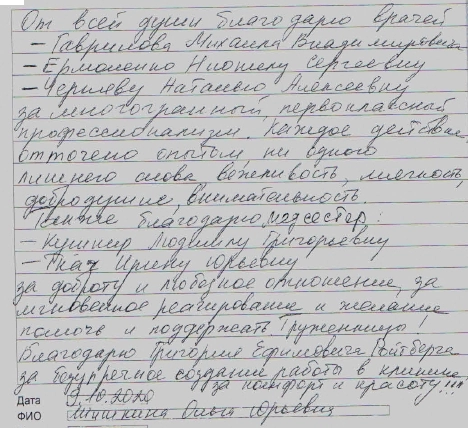 От всей души благодарю врачей
– Гаврилова Михаила Владимировича
– Ермоленко Нионилу Сергеевну
– Черневу Наталью Алексеевну
за многогранный первоклассный
профессионализм. Каждое действие
отточено опытом, ни одного
лишнего слова вежливость, мягкость,
добродушие, внимательность.
Также благодарю медсестер:
– Кушнир Людмилу Григорьевну
– Ткач Ирину Юрьевну
за доброту и любовное отношение, за
мгновенное реагирование и желание
помочь и поддержать. Труженицы!
Благодарю Григория Ефимовича Ройтберга
за безупречное создание работы в клинике
за комфорт и красоту!!!
Дата 9.10.2020
ФИО Мушкина Ольга Юрьевна